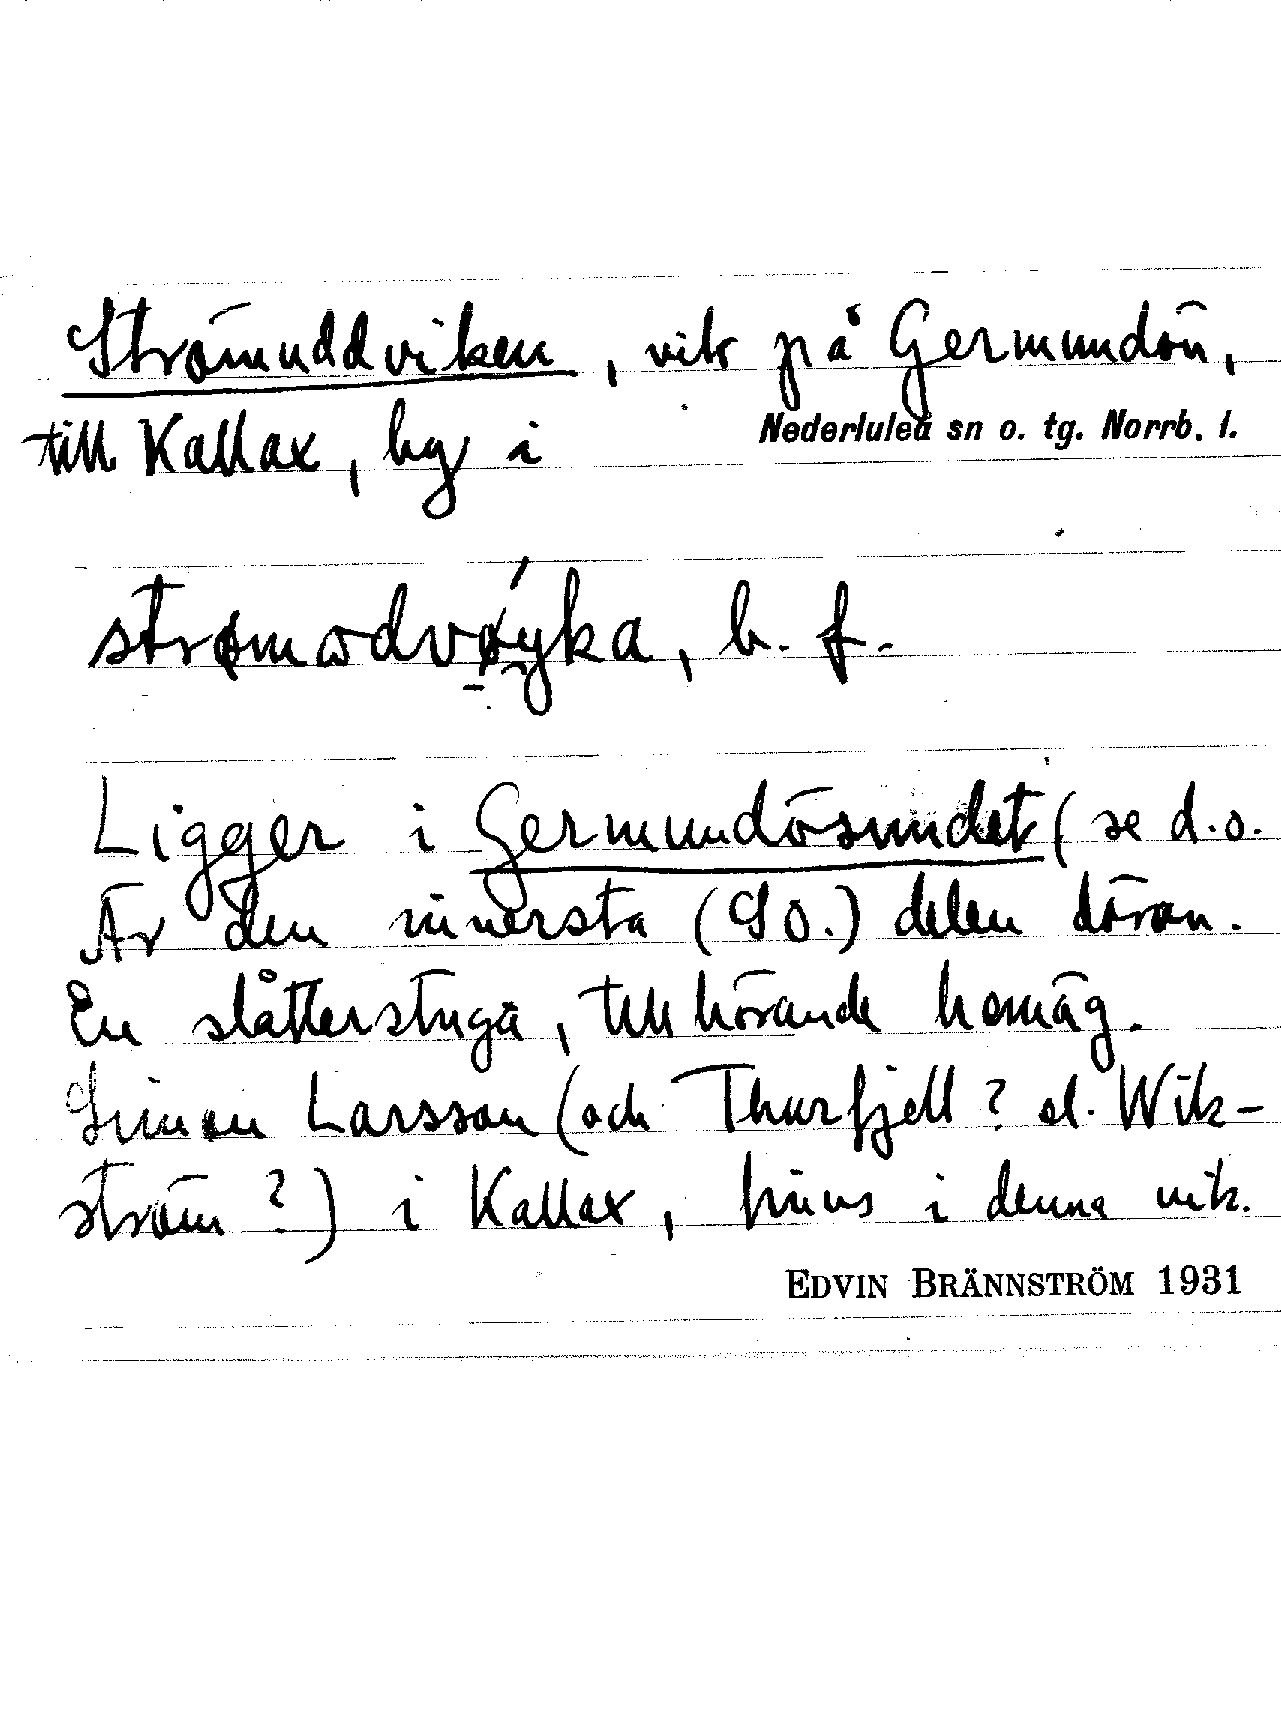 Strömuddviken, vik på Germundön,
till Kallax, by i Nederluleå sn o. tg. Norrb. l.
strømωdvø̀yka, b. f.
Ligger i Germundösundet (se d.o.
Är den innersta (SO.) delen däran.
En slåtterstuga, tillhörande hemäg.
Simon Larsson (och Thurfjell? el. Wik-
ström?) i Kallax, finns i denna vik.
EDVIN BRÄNNSTRÖM 1931